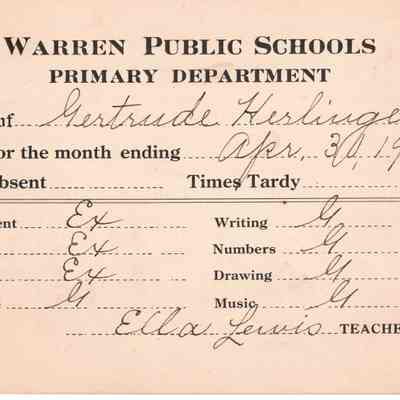 WARREN PUBLIC SCHOOLS
PRIMARY DEPARTMENT
of Gertrude Herlinge
or the month ending Apr. 30, 19
bsent Times Tardy
ent Ex Writing G
Ex Numbers G
Ex Drawing G
G Music G
Ella Lewis TEACHE